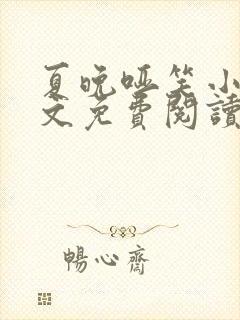 夏晚哑笑小
文免费閱讀
暢心齋